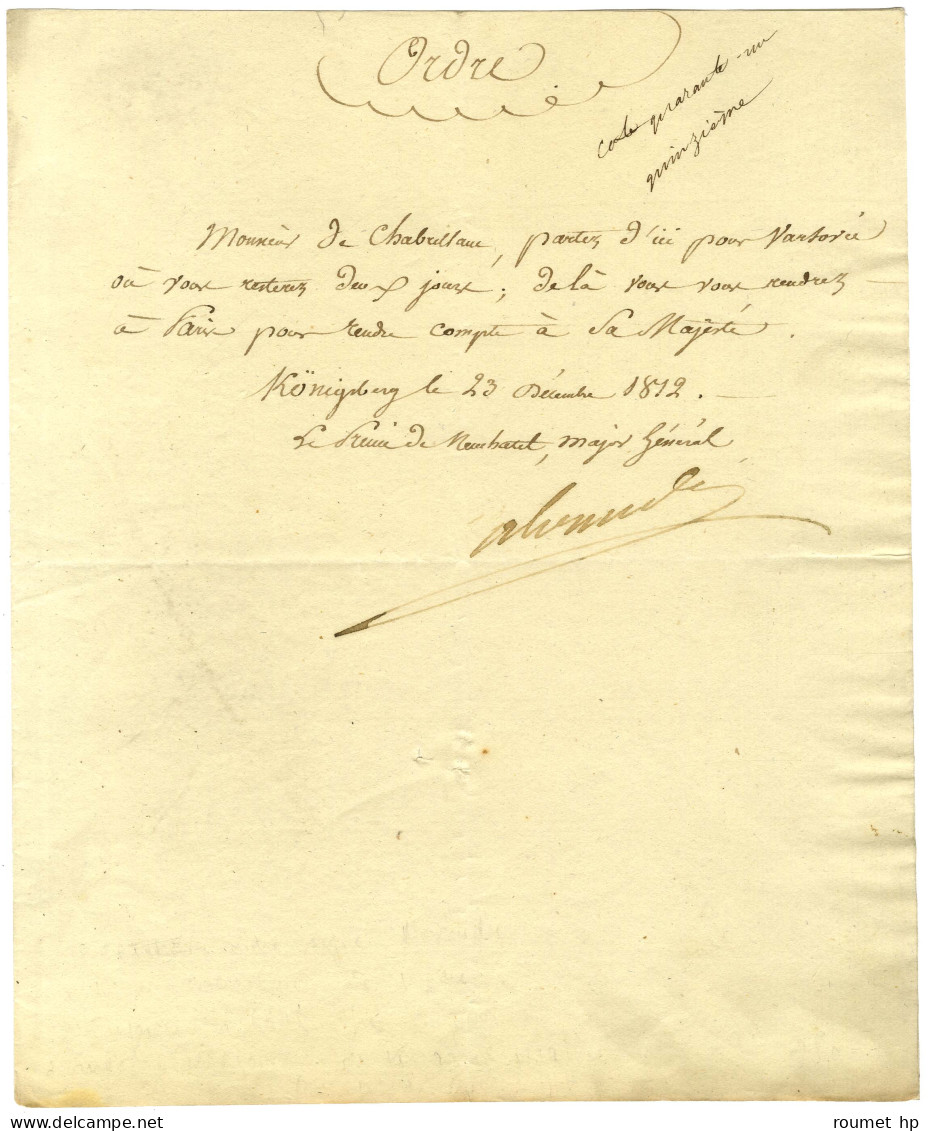 Ordre
cote quarante-un
quinzième
Monsieur de Chabrillant, partez d'ici pour Varsovie
où vous resterez deux jours ; de là vous vous rendrez
à Paris pour rendre compte à Sa Majesté.
Königsberg le 23 Décembre 1812.
Le Prince de Neuchatel, major Général
roumet hp